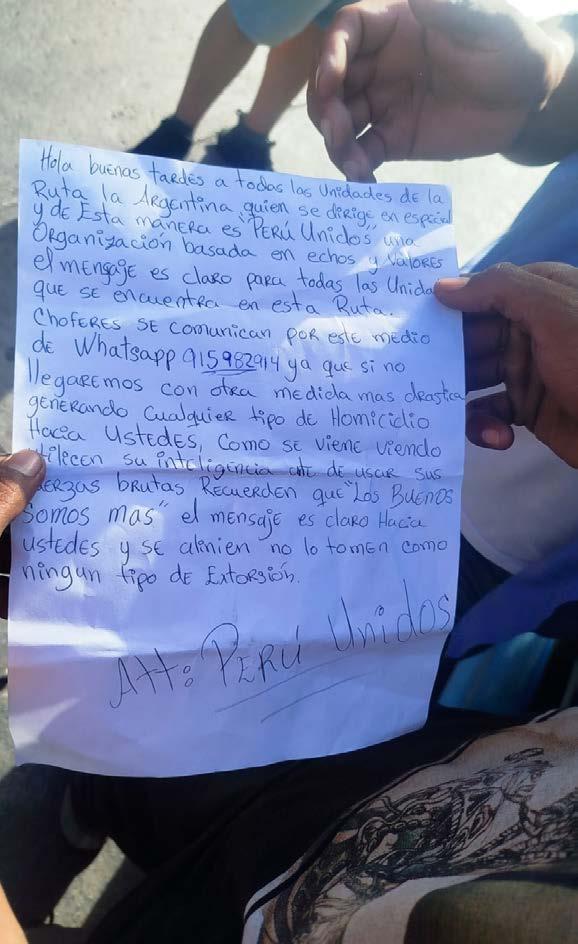 Hola buenas tardes a todas las Unidades de la
Ruta la Argentina, quien se dirige en especial
y de Esta manera es "PERÚ Unidos" una
Organización basada en echos y Valores
el mensaje es claro para todas las Unida
que se encuentra en esta Ruta.
Choferes se comunican por este medio
de Whatsapp 915982914 ya que si no
llegaremos con otra medida mas drastica
generando cualquier tipo de Homicidio
Hacia Ustedes, Como se viene viendo
utilicen su inteligencia de usar sus
erzas brutas Recuerden que "Los Buenos
Somos mas" el mensaje es claro Hacia
ustedes y se alinien no lo tomen como
ningun tipo de Extorsión.
Att: PERÚ Unidos